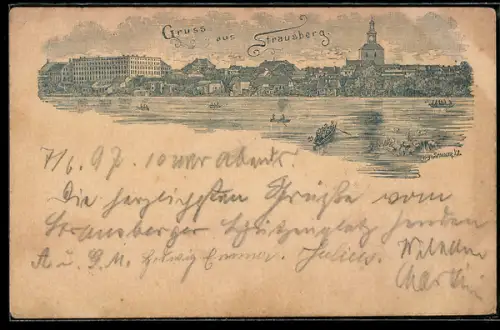 Gruss aus Strausberg.
7/6. 97. 10 Uhr Abends.
Die herzlichsten Grüsse vom
Strausberger Schützenplatz senden
A. u. G. M. Hedwig Emma. Julius. Wilhelm
Martin